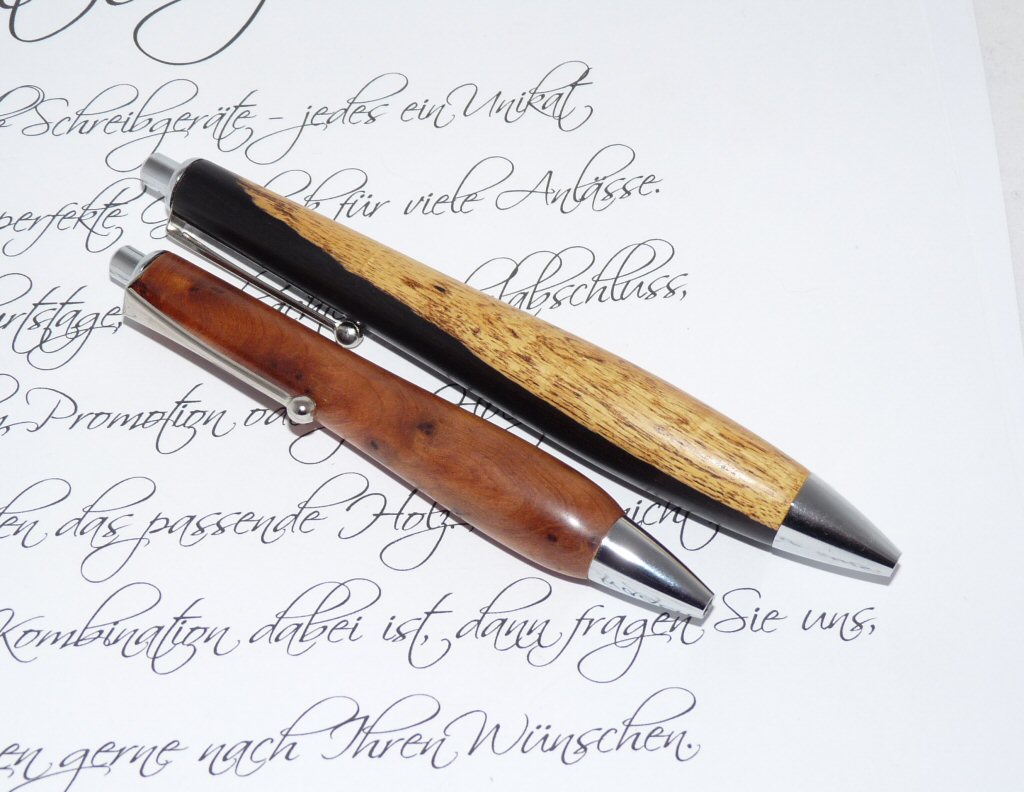 Schreibgeräte – jedes ein Unikat
perfekte für viele Anlässe.
urtstage, dabschluss,
Promotion od
en das passende Holz nicht
Kombination dabei ist, dann fragen Sie uns,
en gerne nach Ihren Wünschen.